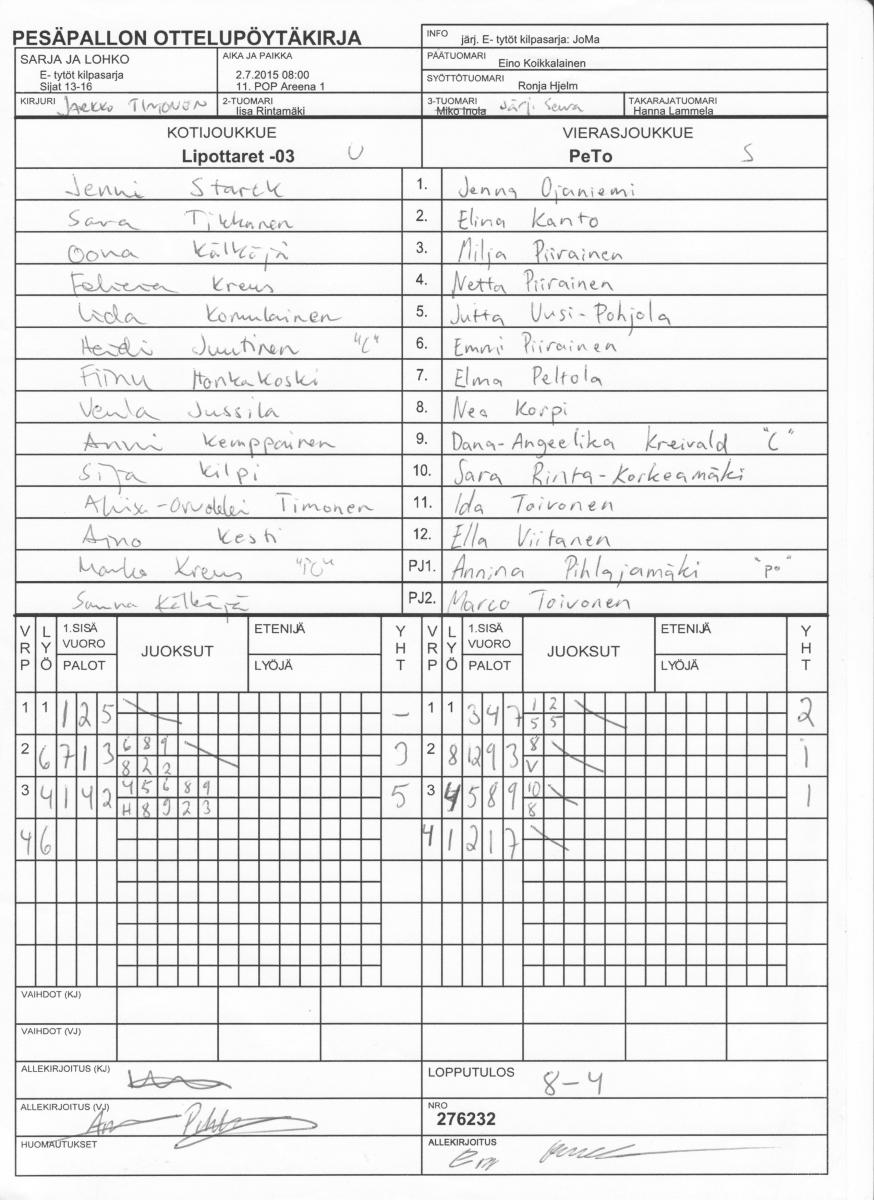 PESÄPALLON OTTELUPÖYTÄKIRJA
INFO järj. E- tytöt kilpasarja: JoMa
SARJA JA LOHKO
E- tytöt kilpasarja
Sijat 13-16
AIKA JA PAIKKA
2.7.2015 08:00
11. POP Areena 1
PÄÄTUOMARI Eino Koikkalainen
SYÖTTÖTUOMARI Ronja Hjelm
KIRJURI Jarkko TIMONEN
2-TUOMARI Iisa Rintamäki
3-TUOMARI Miko Inota Järj. Seura
TAKARAJATUOMARI Hanna Lammela
KOTIJOUKKUE
Lipottaret -03 U
VIERASJOUKKUE
PeTo S
Jenni Starck 1. Jenna Ojaniemi
Sara Tikkanen 2. Elina Kanto
Oona Kälkäjä 3. Milja Piirainen
Kreus 4. Netta Piirainen
Iida Komulainen 5. Jutta Uusi-Pohjola
Heidi Juutinen "C" 6. Emmi Piirainen
Fiinu Honkakoski 7. Elma Peltola
Venla Jussila 8. Nea Korpi
Anni Kemppainen 9. Dana-Angeelika Kreivald "C"
Silja Kilpi 10. Sara Rinta-Korkeamäki
Timonen 11. Ida Toivonen
Aino Kesti 12. Ella Viitanen
Marko Kreus PJ1. Annina Pihlajamäki "PJ"
Sanna Kälkäjä PJ2. Marco Toivonen
VRP LYÖ 1.SISÄ VUORO PALOT JUOKSUT ETENIJÄ LYÖJÄ YHT VRP LYÖ 1.SISÄ VUORO PALOT JUOKSUT ETENIJÄ LYÖJÄ YHT
1 1 1 2 5 – 1 1 3 4 7 1 2 2
5 5
2 6 7 1 3 6 8 9 3 2 8 12 9 3 8 1
8 2 2 V
3 4 1 4 2 4 5 6 8 9 5 3 4 5 8 9 10 1
H 8 9 2 3 8
4 6 4 1 2 1 7
VAIHDOT (KJ)
VAIHDOT (VJ)
ALLEKIRJOITUS (KJ)
LOPPUTULOS 8-4
ALLEKIRJOITUS (VJ)
NRO
276232
HUOMAUTUKSET
ALLEKIRJOITUS